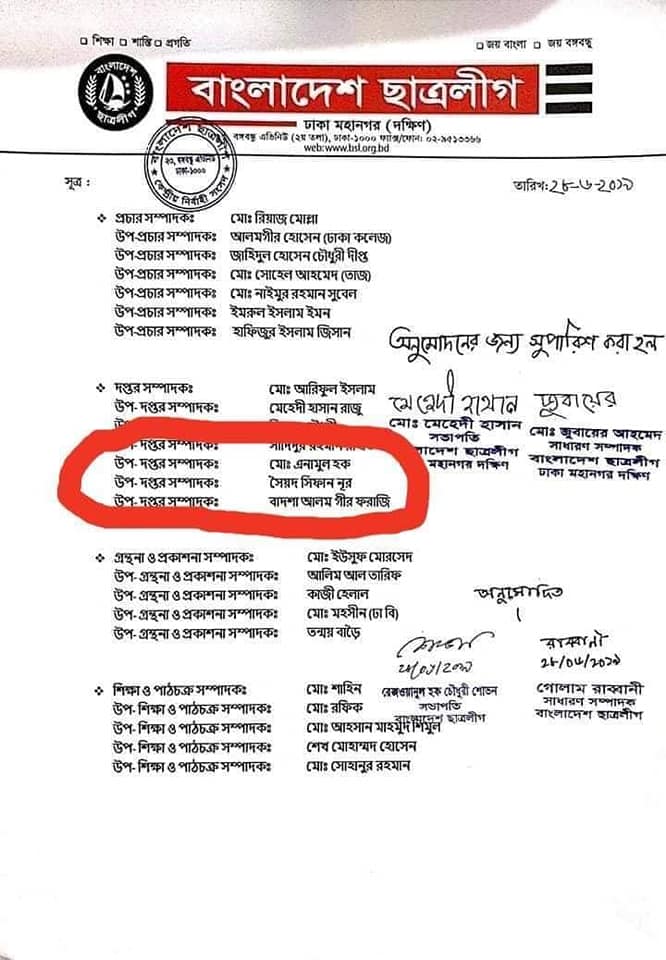 শিক্ষা শান্তি প্রগতি
জয় বাংলা জয় বঙ্গবন্ধু
বাংলাদেশ ছাত্রলীগ
বাংলাদেশ ছাত্রলীগ
ঢাকা মহানগর (দক্ষিণ)
বঙ্গবন্ধু এভিনিউ (২য় তলা), ঢাকা-১০০০ ফ্যাক্স/ফোন: ০২-৯৫১৩৩৬৬
web:www.bsl.org.bd
বাংলাদেশ ছাত্রলীগ
২৩, বঙ্গবন্ধু এভিনিউ
ঢাকা-১০০০
কেন্দ্রীয় নির্বাহী সংসদ
সূত্র :
তারিখ:২৮-৬-২০১৯
প্রচার সম্পাদকঃ মোঃ রিয়াজ মোল্লা
উপ-প্রচার সম্পাদকঃ আলমগীর হোসেন (ঢাকা কলেজ)
উপ-প্রচার সম্পাদকঃ জাহিদুল হোসেন চৌধুরী দীপ্ত
উপ-প্রচার সম্পাদকঃ মোঃ সোহেল আহমেদ (তাজ)
উপ-প্রচার সম্পাদকঃ মোঃ নাইমুর রহমান সুবেল
উপ-প্রচার সম্পাদকঃ ইমরুল ইসলাম ইমন
উপ-প্রচার সম্পাদকঃ হাফিজুর ইসলাম জিসান
অনুমোদনের জন্য সুপারিশ করা হল
দপ্তর সম্পাদকঃ মোঃ আরিফুল ইসলাম
উপ- দপ্তর সম্পাদকঃ মেহেদী হাসান রাজু
উপ- দপ্তর সম্পাদকঃ
উপ- দপ্তর সম্পাদকঃ মোঃ এনামুল হক
উপ- দপ্তর সম্পাদকঃ সৈয়দ সিফান নূর
উপ- দপ্তর সম্পাদকঃ বাদশা আলম গীর ফরাজি
মেহেদী হাসান
মোঃ মেহেদী হাসান
সভাপতি
বাংলাদেশ ছাত্রলীগ
মহানগর দক্ষিণ
জুবায়ের
মোঃ জুবায়ের আহমেদ
সাধারণ সম্পাদক
বাংলাদেশ ছাত্রলীগ
ঢাকা মহানগর দক্ষিণ
গ্রন্থনা ও প্রকাশনা সম্পাদকঃ মোঃ ইউসুফ মোরসেদ
উপ- গ্রন্থনা ও প্রকাশনা সম্পাদকঃ আলিম আল তারিফ
উপ- গ্রন্থনা ও প্রকাশনা সম্পাদকঃ কাজী হেলাল
উপ- গ্রন্থনা ও প্রকাশনা সম্পাদকঃ মোঃ মহসীন (ঢা বি)
উপ- গ্রন্থনা ও প্রকাশনা সম্পাদকঃ তন্ময় বাড়ৈ
অনুমোদিত
২৮/০৬/২০১৯
রেজওয়ানুল হক চৌধুরী শোভন
সভাপতি
বাংলাদেশ ছাত্রলীগ
রাব্বানী
২৮/০৬/২০১৯
গোলাম রাব্বানী
সাধারণ সম্পাদক
বাংলাদেশ ছাত্রলীগ
শিক্ষা ও পাঠচক্র সম্পাদকঃ মোঃ শাহিন
উপ- শিক্ষা ও পাঠচক্র সম্পাদকঃ মোঃ রফিক
উপ- শিক্ষা ও পাঠচক্র সম্পাদকঃ মোঃ আহসান মাহমুদ শিমুল
উপ- শিক্ষা ও পাঠচক্র সম্পাদকঃ শেখ মোহাম্মদ হোসেন
উপ- শিক্ষা ও পাঠচক্র সম্পাদকঃ মোঃ সোহানুর রহমান